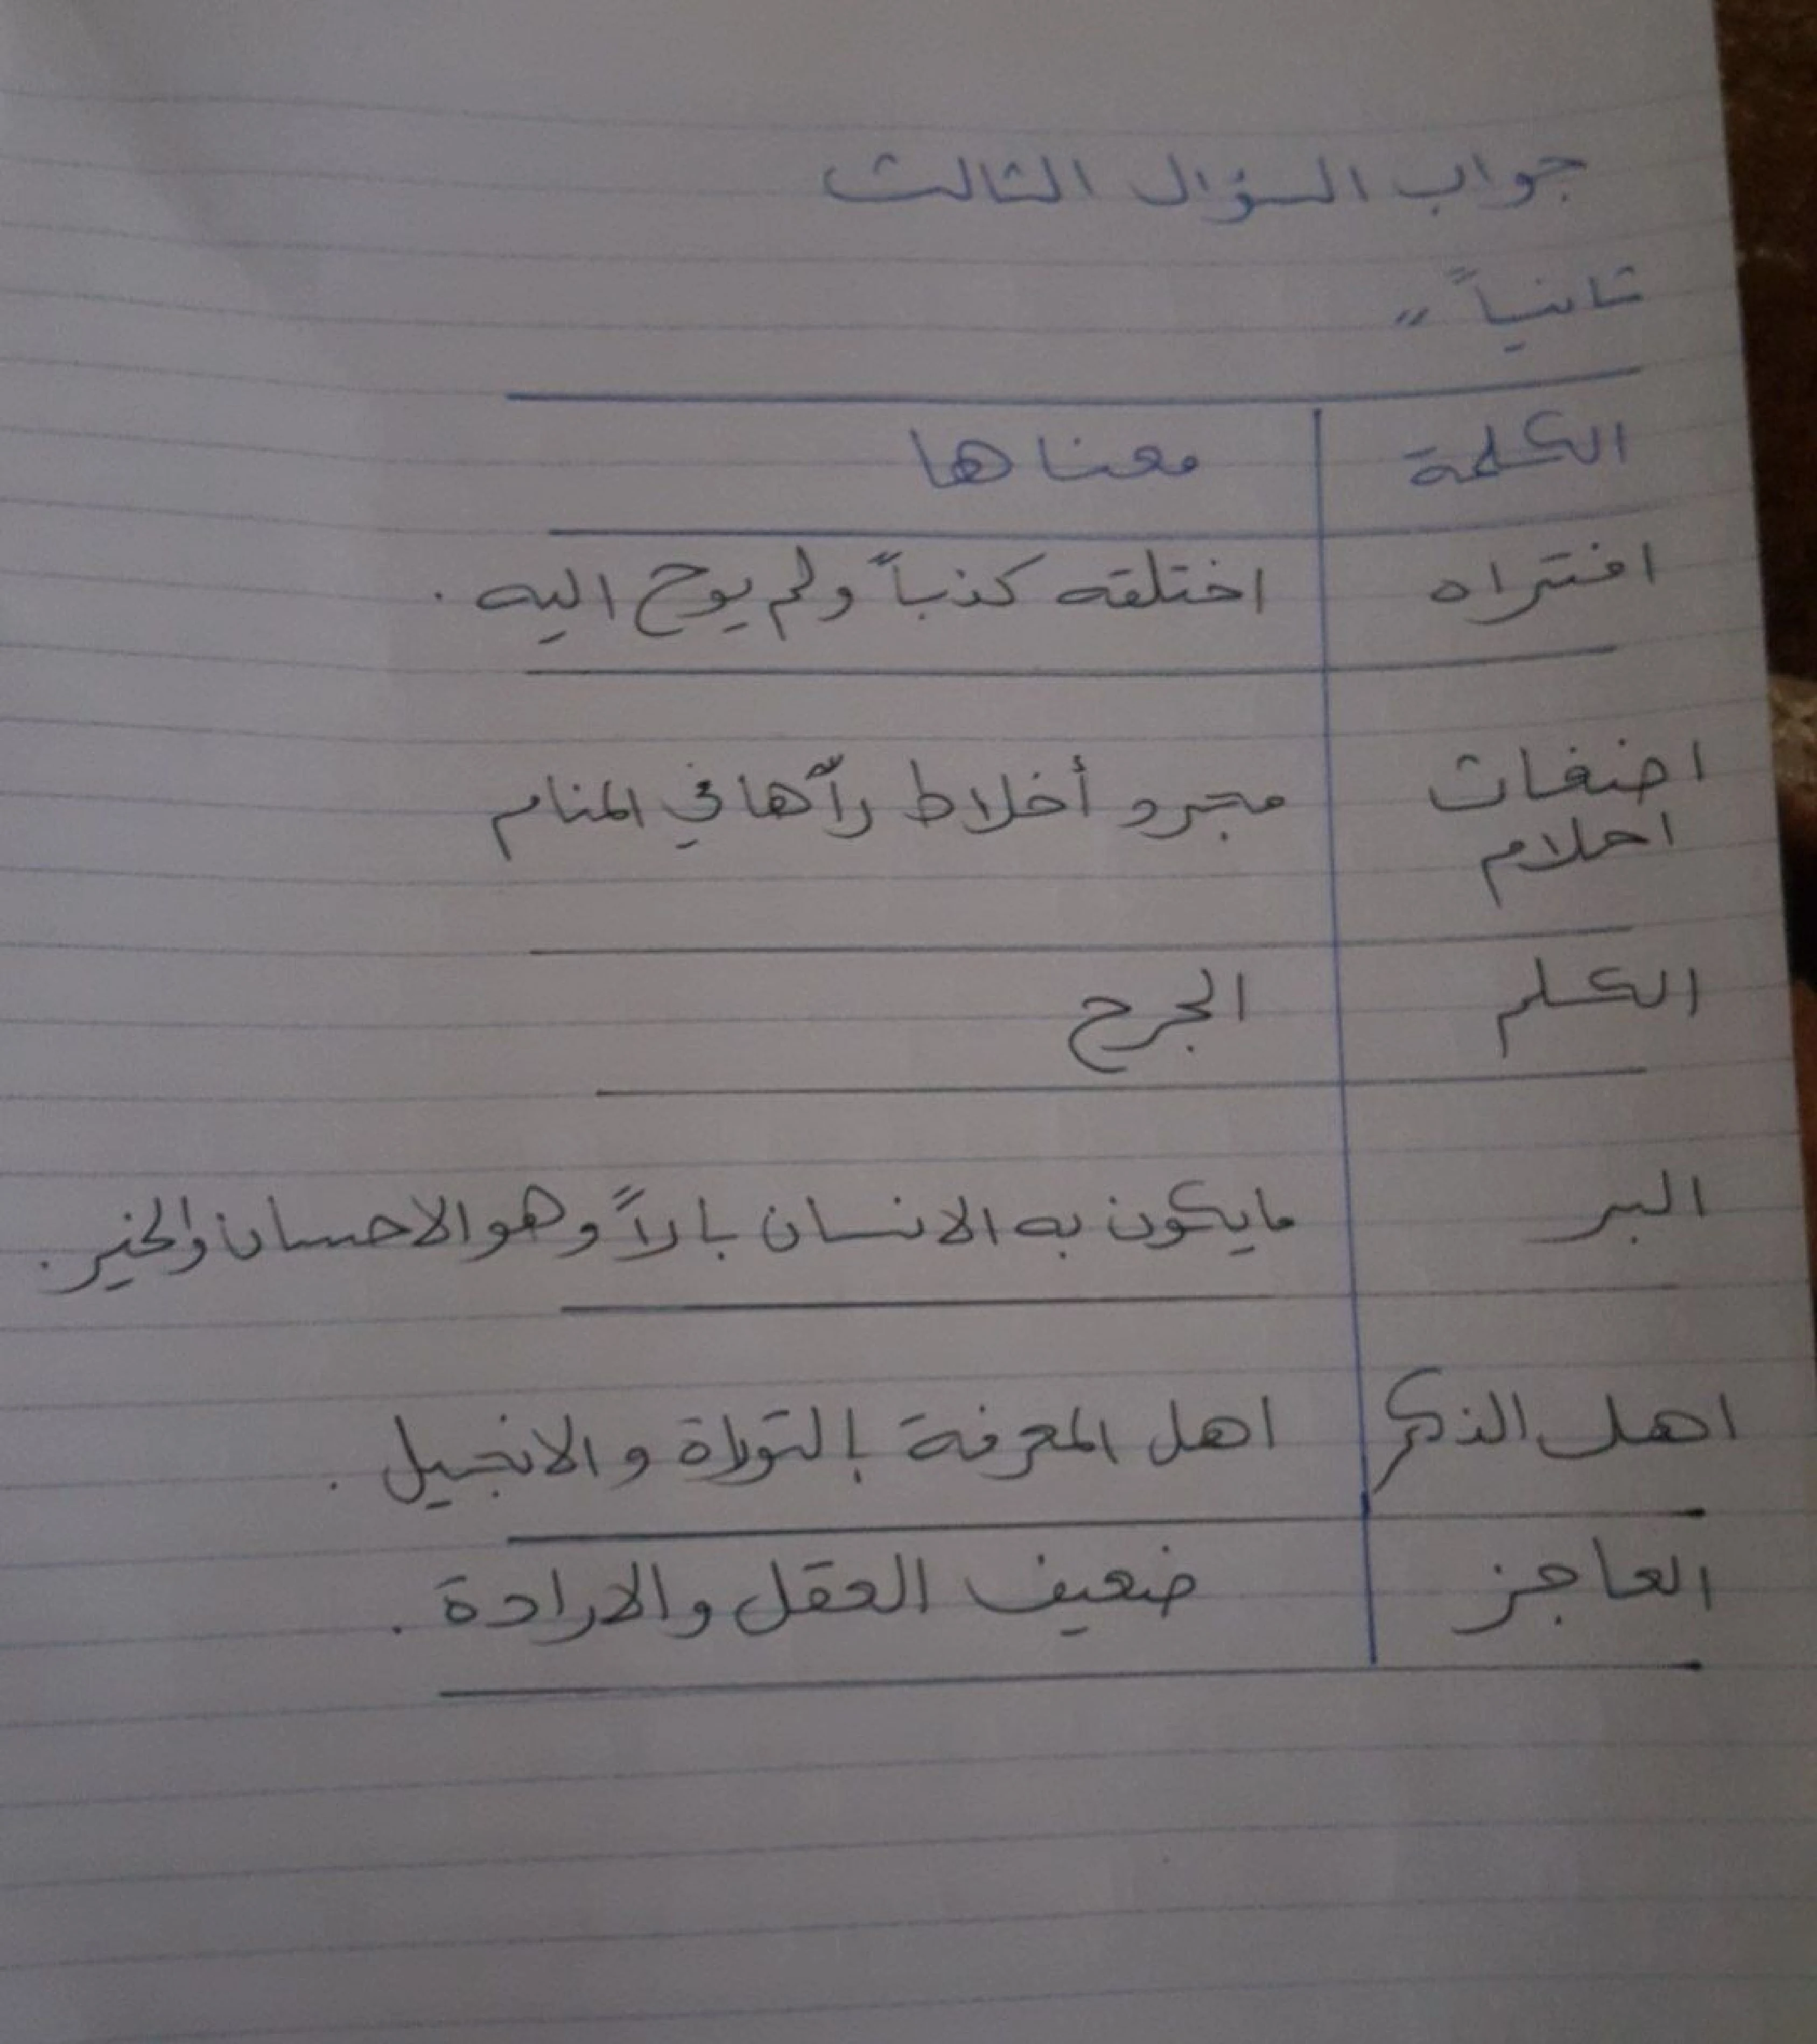 جواب السؤال الثالث
ثانياً "
الكلمة معناها
افتراه اختلقه كذباً ولم يوح اليه .
اضغاث مجرد أخلاط رآها في المنام
احلام
الكلم الجرح
البر مايكون به الانسان باراً وهو الاحسان والخير .
اهل الذكر اهل المعرفة بالتوراة والانجيل .
العاجز ضعيف العقل والارادة .